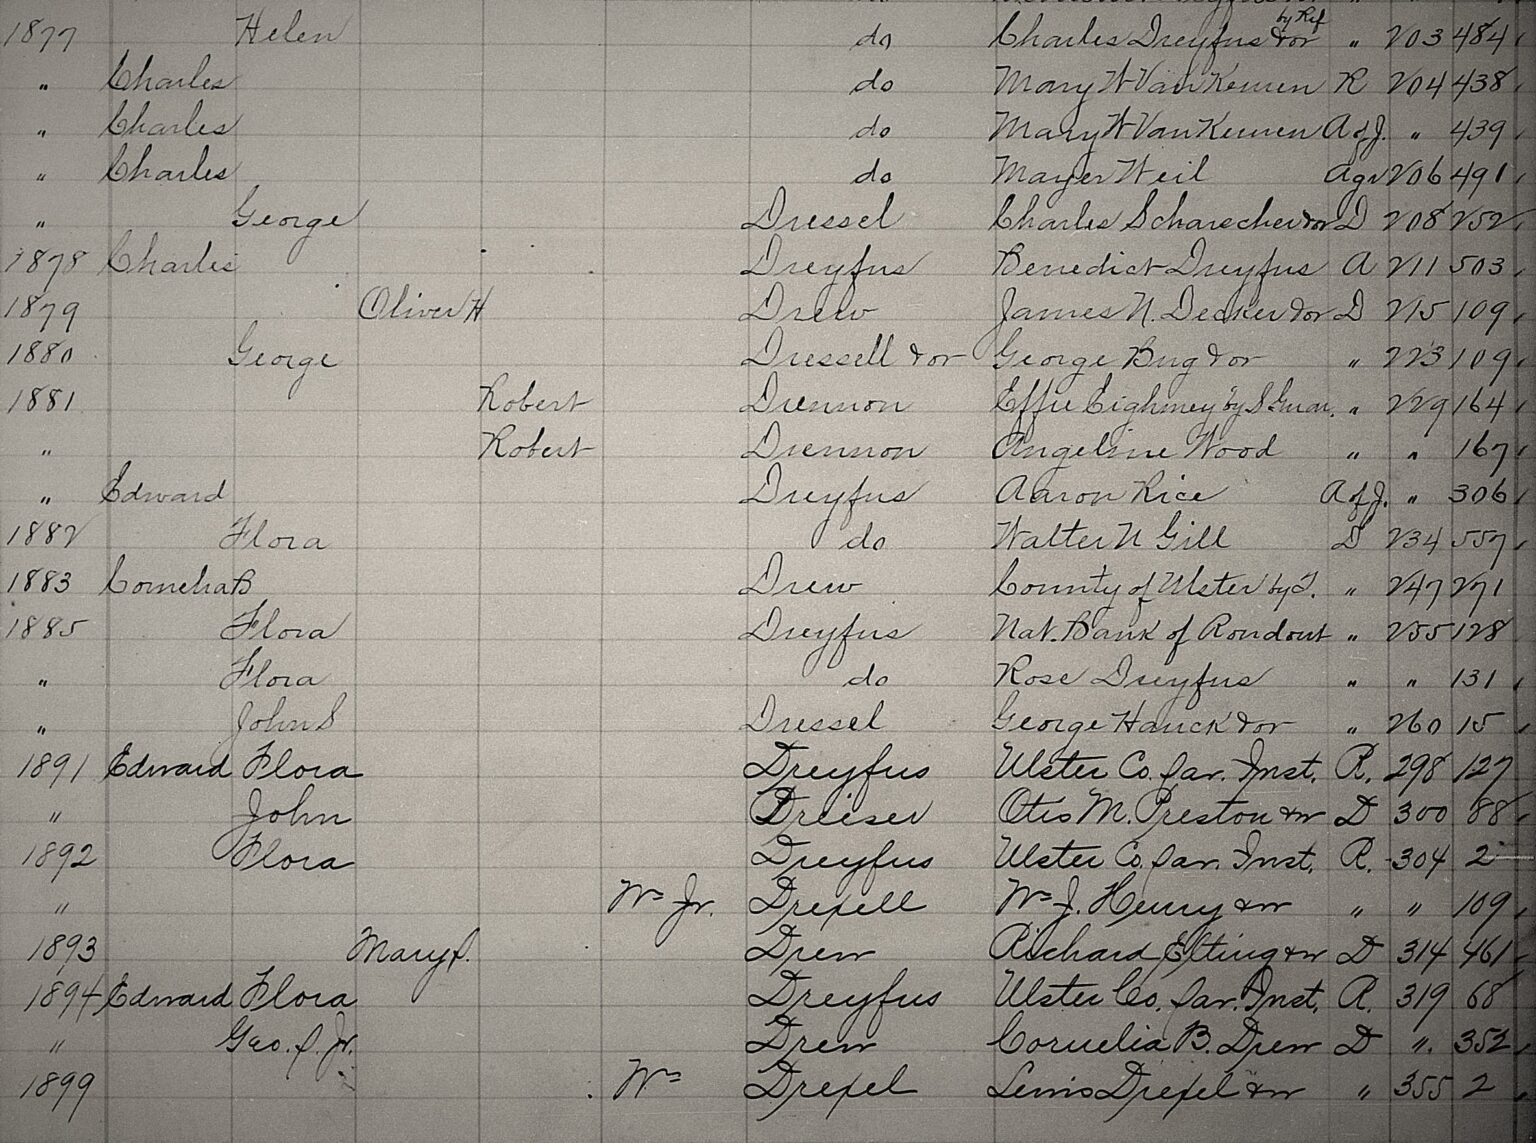 1877 Helen do Charles Dreyfus &or by Ref " 203 484
" Charles do Mary W Van Keuren R 204 438
" Charles do Mary W Van Keuren A of J. " 439
" Charles do Mayer Weil Agr 206 491
" George Dressel Charles &or D 208 252
1878 Charles Dreyfus Benedict Dreyfus A 211 503
1879 Oliver H Drew James N. Decker &or D 215 109
1880 George Dressell &or George Bug &or " 223 109
1881 Robert Drennon Effie Eighmey by S Guar. " 229 164
" Robert Drennon Angeline Wood " " 167
" Edward Dreyfus Aaron Rice A of J. " 306
1882 Flora do Walter N Gill D 234 557
1883 Cornelia B Drew County of Ulster by T. " 247 271
1885 Flora Dreyfus Nat. Bank of Rondout " 255 128
" Flora do Rose Dreyfus " " 131
" John S Dressel George Hauck &or " 260 15
1891 Edward Flora Dreyfus Ulster Co. Sav. Inst. R. 298 127
" John Drieser Otis M. Preston &or D 300 88
1892 Flora Dreyfus Ulster Co. Sav. Inst. R. 304 2
" Wm Jr. Drexell Wm J. Henry &or " " 109
1893 Mary S. Drew Richard Elting &or D 314 461
1894 Edward Flora Dreyfus Ulster Co. Sav. Inst. R. 319 68
" Geo. S. Jr. Drew Cornelia B. Drew D ". 352
1899 Wm Drexel Lewis Drexel &or " 355 2